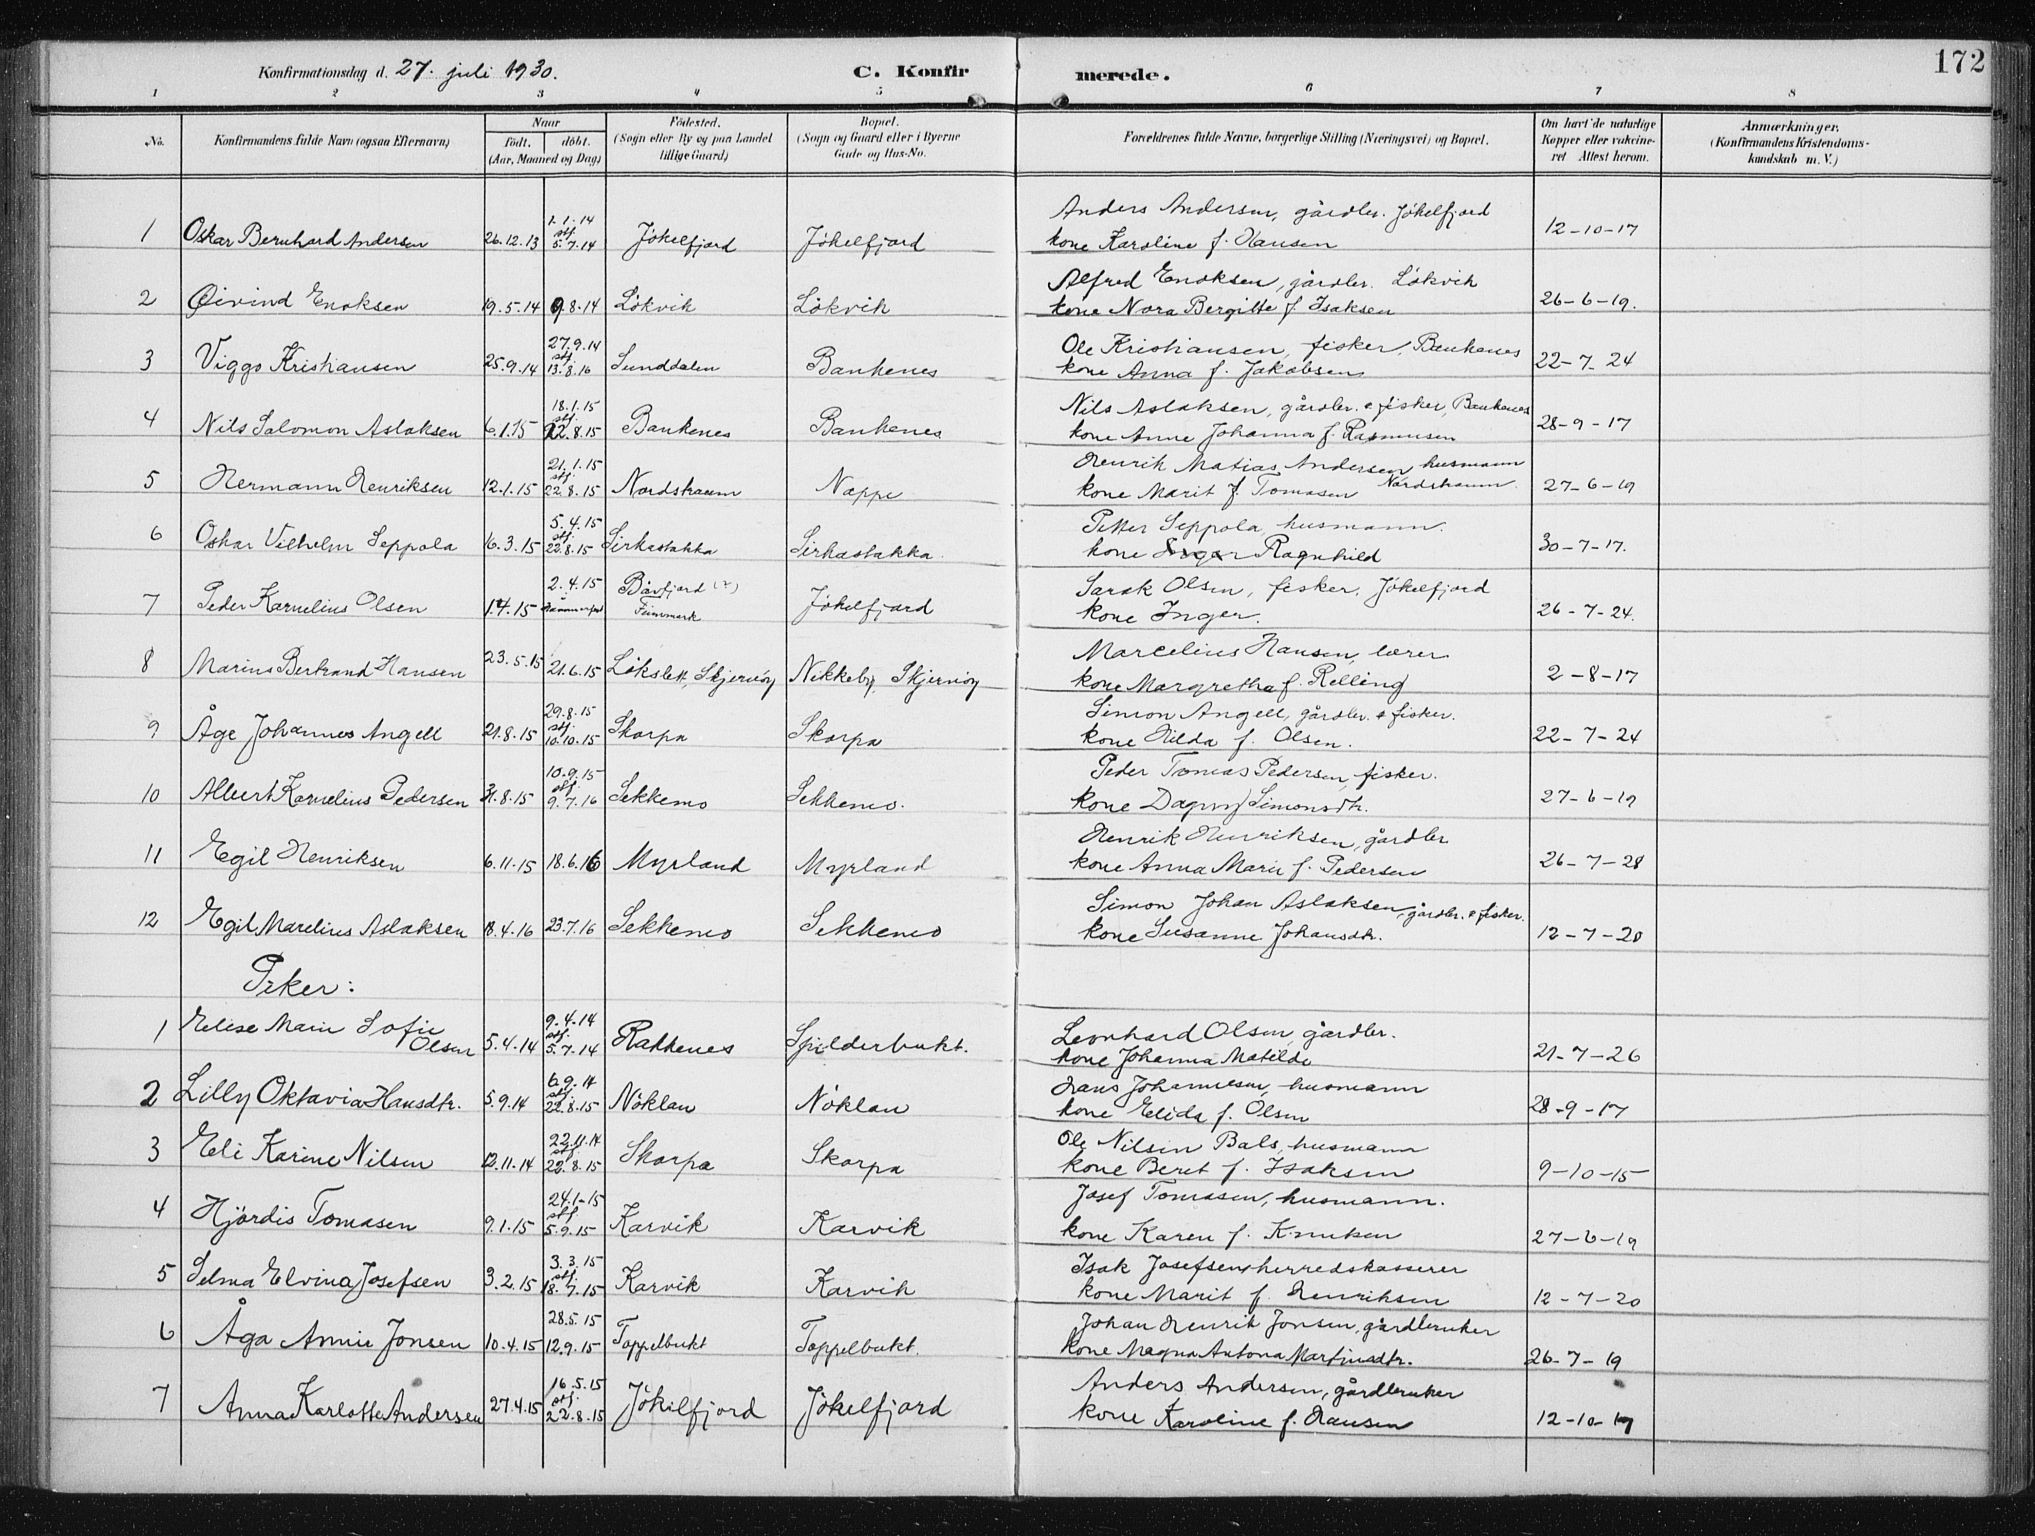 172
Konfirmationsdag d. 27. juli 1930.
C. Konfir merede.
1 2 3 4 5 6 7 8
No. Konfirmandens fulde Navn (ogsaa Efternavn) Naar født. døbt. (Aar, Maaned og Dag) Fødested. (Sogn eller By og paa Landet tillige Gaard) Bopæl. (Sogn og Gaard eller i Byerne Gade og Hus-No. Forældrenes fulde Navne, borgerlige Stilling (Næringsvei) og Bopæl. Om havt de naturlige Kopper eller vakcineret Attest herom. Anmærkninger. (Konfirmandens Kristendomskundskab m. V.)
1 Oskar Bernhard Andersen 26.12.13 1.1.14 stf. 5.7.14 Jökelfjord Jökelfjord Anders Andersen, gårdbr. Jökelfjord
kone Karoline f. Hansen 12-10-17
2 Øivind Enoksen 19.5.14 9.8.14 Lökvik Lökvik Alfred Enoksen, gårdbr. Lökvik
kone Nora Bergitte f. Isaksen 26-6-19.
3 Viggo Kristiansen 25.9.14 27.9.14 stf. 13.8.16 Sunddalen Bankenes Ole Kristiansen, fisker, Bankenes
kone Anna f. Jakobsen 22-7-24
4 Nils Salomon Aslaksen 6.1.15 18.1.15 stf. 22.8.15 Bankenes Bankenes Nils Aslaksen, gårdbr. & fisker, Bankenes
kone Anne Johanna f. Rasmussen 28-9-17
5 Hermann Henriksen 12.1.15 21.1.15 stf. 22.8.15 Nordstraum Nappe Henrik Matias Andersen husmann
kone Marit f. Tomasen Nordstraum 27-6-19
6 Oskar Vilhelm Seppola 16.3.15 5.4.15 stf. 22.8.15 Sirkastakka Sirkastakka. Petter Seppola husmann.
kone Inger Ragnhild 30-7-17.
7 Peder Kornelius Olsen 1.4.15 2.4.15 Hammerfest Båvfjord (?) Finnmark Jökelfjord Sarak Olsen, fisker, Jökelfjord
kone Inger. 26-7-24.
8 Marius Bertrand Hansen 23.5.15 21.6.15 Lökslett, Skjervöy Nikkeby, Skjervöy Marcelius Hansen, lærer
kone Margretha f. Relling 2-8-17
9 Åge Johannes Angell 21.8.15 29.8.15 stf. 10.10.15 Skorpa Skorpa Simon Angell, gårdbr. & fisker.
kone Hilda f. Olsen. 22-7-24
10 Albert Kornelius Pedersen 31.8.15 10.9.15 stf. 9.7.16 Sekkemo Sekkemo. Peder Tomas Pedersen, fisker.
kone Dagny Simonsdtr. 27-6-19
11 Egil Henriksen 6.11.15 18.6.16 Myrland Myrland Henrik Henriksen, gårdbr
kone Anna Marie f. Pedersen 26-7-28
12 Egil Marelius Aslaksen 18.4.16 23.7.16 Sekkemo Sekkemo Simon Johan Aslaksen, gårdbr. & fisker.
kone Susanne Johansdtr. 12-7-20
Piker:
1 Elise Marie Sofie Olsen 5.4.14 9.4.14 stf. 5.7.14 Rakkenes Spilderbukt. Leonhard Olsen, gårdbr.
kone Johanna Matilde 21-7-26
2 Lilly Oktavia Hansdtr. 5.9.14 6.9.14 stf. 22.8.15 Nöklan Nöklan Hans Johannesen, husmann
kone Elida f. Olsen 28-9-17
3 Eli Karine Nilsen 12.11.14 22.11.14 stf. 22.8.15 Skorpa Skorpa Ole Nilsen Bals, husmann
kone Beret f. Isaksen 9-10-15
4 Hjördis Tomasen 9.1.15 24.1-15 stf. 5.9.15 Karvik Karvik Josef Tomasen, husmann.
kone Karen f. Knutsen 27-6-19
5 Selma Elvina Josefsen 3.2.15 3.3.15 stf. 18.7.15 Karvik Karvik Isak Josefsen, herredskasserer
kone Marit f. Henriksen 12-7-20
6 Åga Annie Jonsen 10.4.15 28.5.15 12.9.15 Toppelbukt Toppelbukt. Johan Henrik Jonsen, gårdbruker
kone Magna Antona Martinsdtr. 26-7-19
7 Anna Karlotte Andersen 27.4.15 16.5.15 stf. 22.8.15 Jökelfjord Jökelfjord Anders Andersen, gårdbruker
kone Karoline f. Hansen 12-10-17